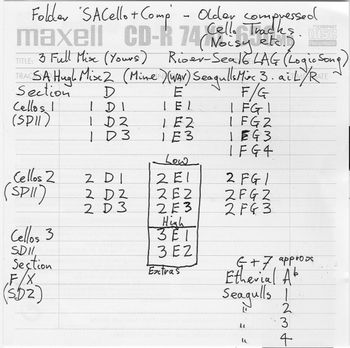 Folder 'SACello+Comp' – Older compressed
Cello Tracks.
Noisy etc!
maxell CD-R 74
3 Full Mix (Yours) River-Seal6LAG (LogicSong)
SAHughMix2 (Mine) (WAV) SeagullsMix3.aiL/R
Section D E F/G
Cellos 1 1 D1 1 E1 1 FG1
(SDII) 1 D2 1 E2 1 FG2
1 D3 1 E3 1 FG3
1 FG4
Low
Cellos 2 2 D1 2 E1 2 FG1
(SPII) 2 D2 2 E2 2 FG2
2 D3 2 E3 2 FG3
High
Cellos 3 3 E1
SDII 3 E2
Extras
Section
F/X
(SD2)
G+7 approx
Etherial Ab
Seagulls 1
" 2
" 3
" 4